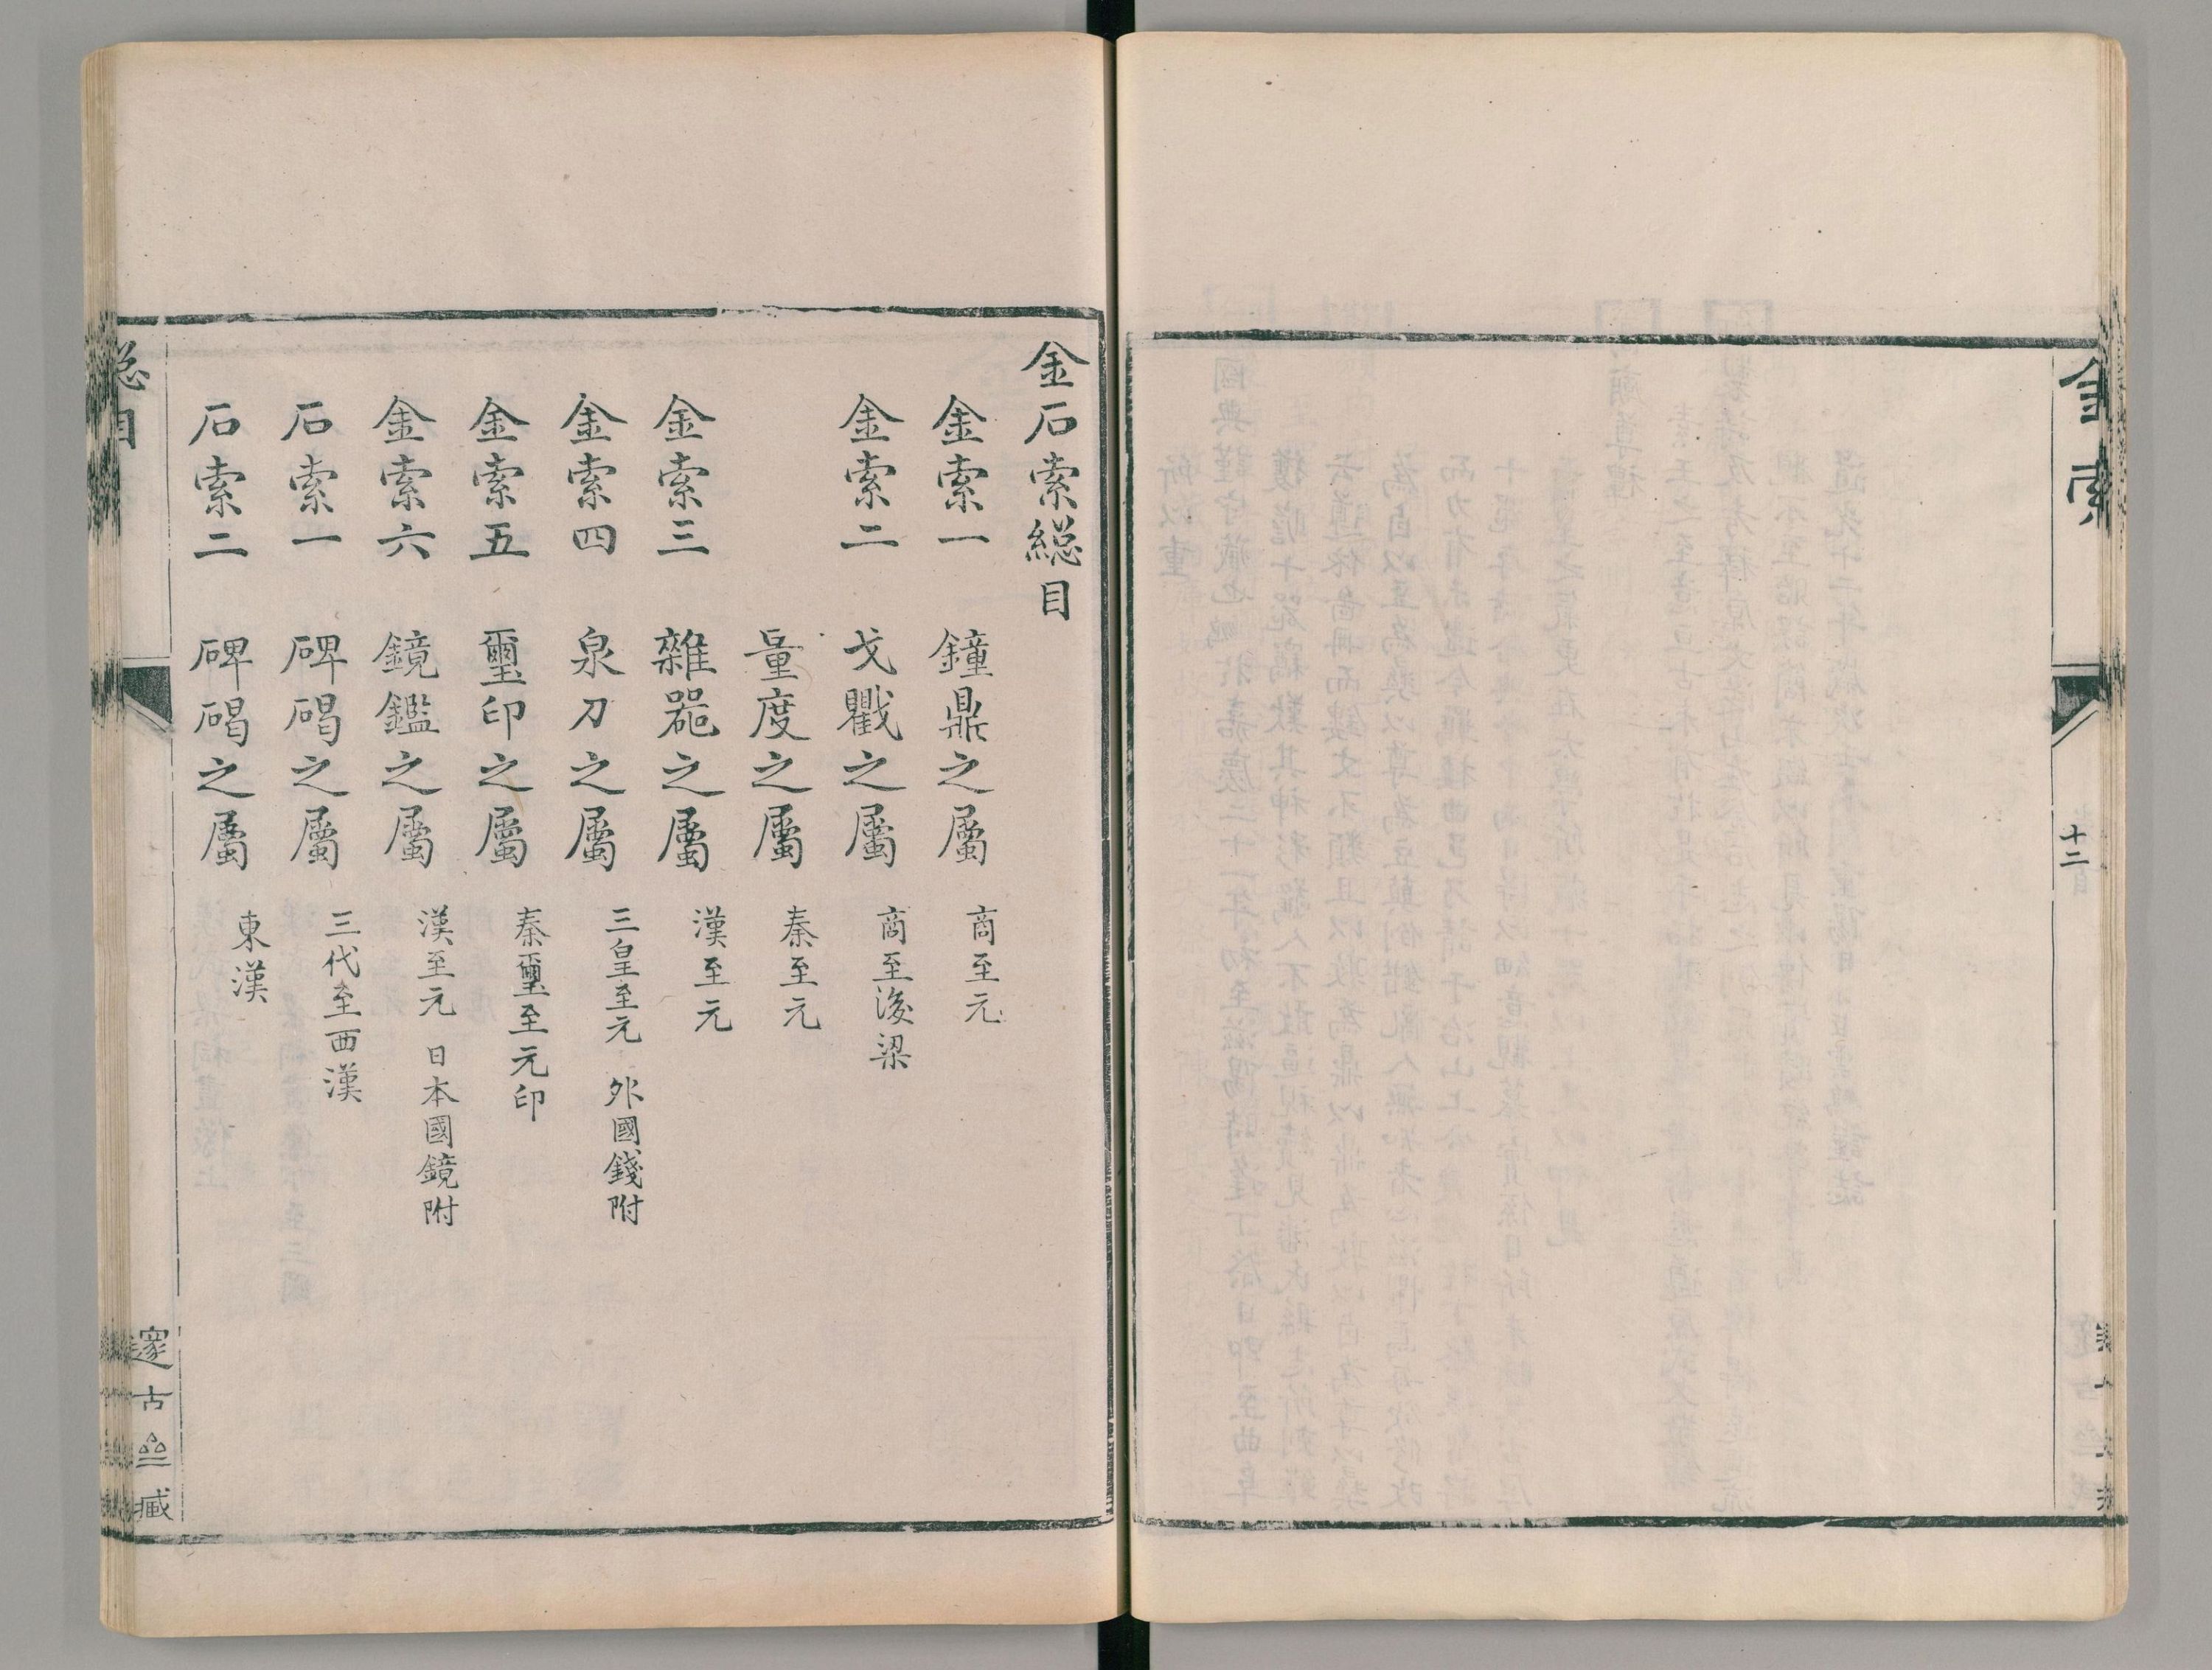 金索
十二
金石索緫目
金索一 鐘鼎之屬 商至元
金索二 戈戵之屬 商至後梁
量度之屬 秦至元
金索三 雜噐之屬 漢至元
金索四 泉刀之屬 三皇至元 外國錢附
金索五 璽印之屬 秦璽至元印
金索六 鏡鑑之屬 漢至元 日本國鏡附
石索一 碑碣之屬 三代至西漢
石索二 碑碣之屬 東漢
緫目
邃古亝藏